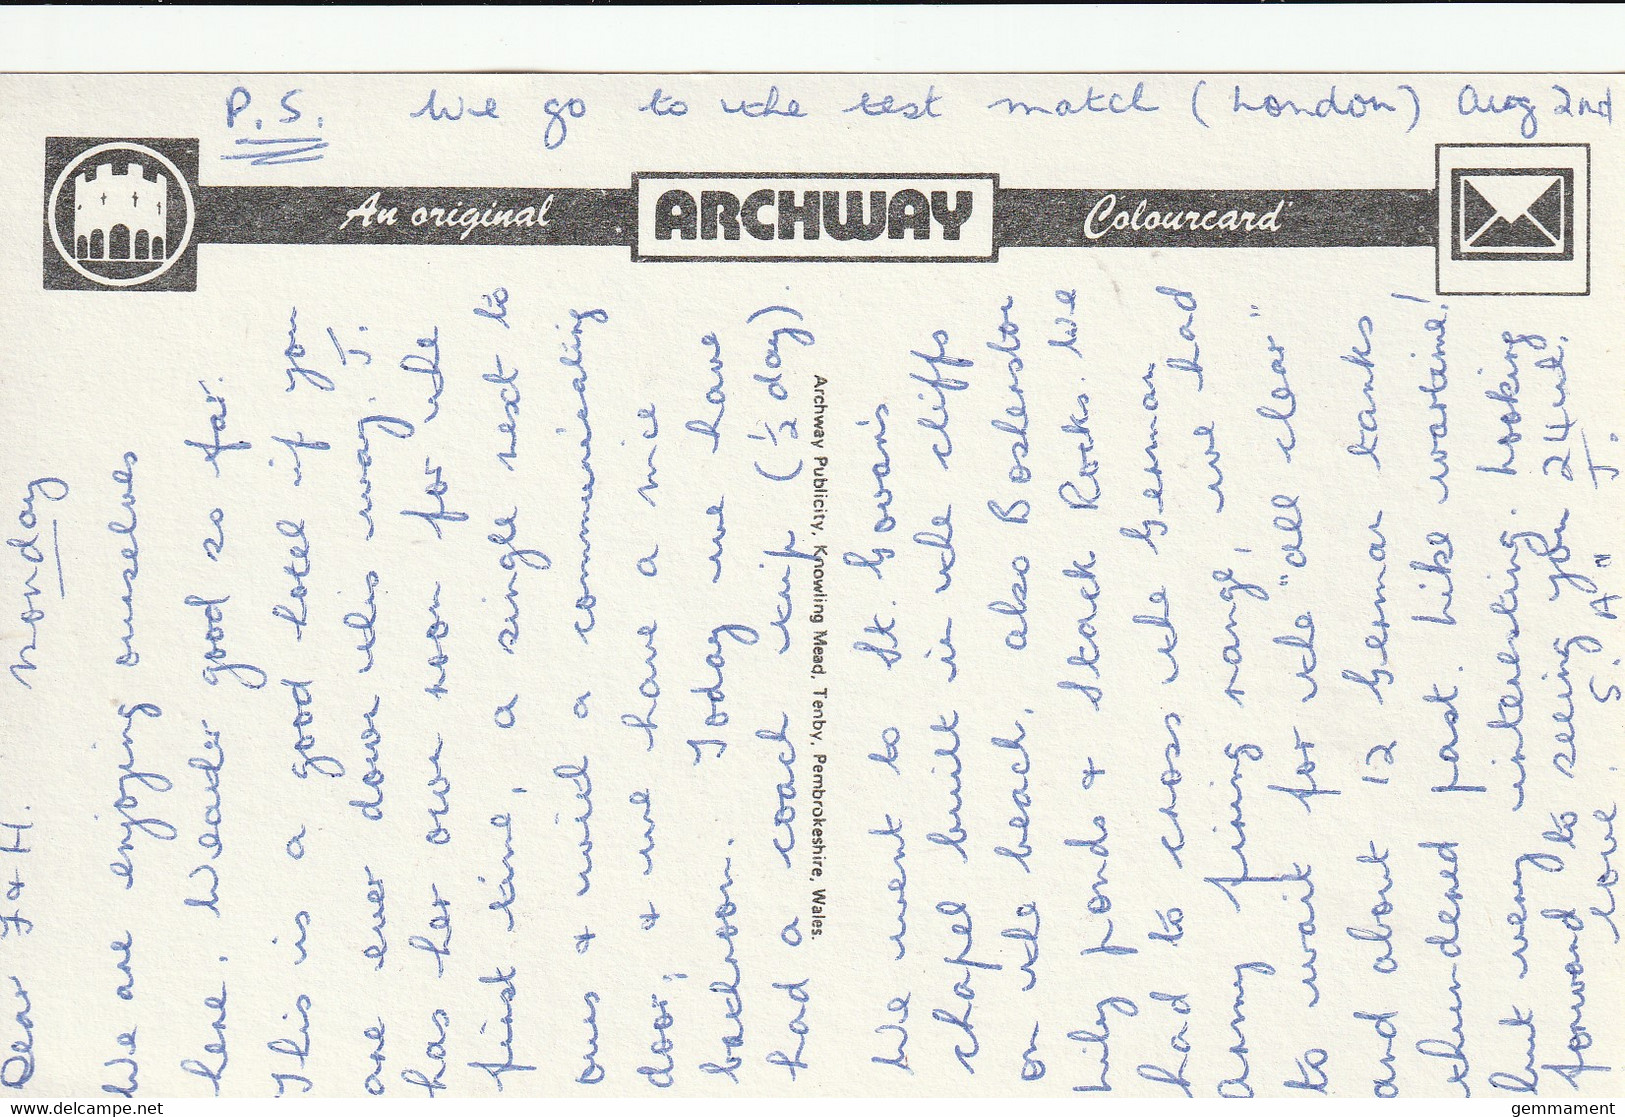 P.S. We go to the test match (London) Aug 2nd
An original ARCHWAY Colourcard
Dear F & H. Monday
We are enjoying ourselves
here. Weather good so far.
This is a good hotel if you
are ever down this way. J.
has her own room for the
first time, a single next to
ours & with a communicating
door, & we have a nice
bathroom. Today we have
had a coach trip (½ day).
Archway Publicity, Knowling Mead, Tenby, Pembrokeshire, Wales.
We went to St. Govan's
chapel built in the cliffs
on the beach, also Bosherston
Lily ponds & Stack Rocks. We
had to cross the German
army firing range, we had
to wait for the "all clear"
and about 12 German tanks
thundered past. Like wartime!
but very interesting. Looking
forward to seeing you 24th.
love. S. A " J.
delcampe.net
gemmament